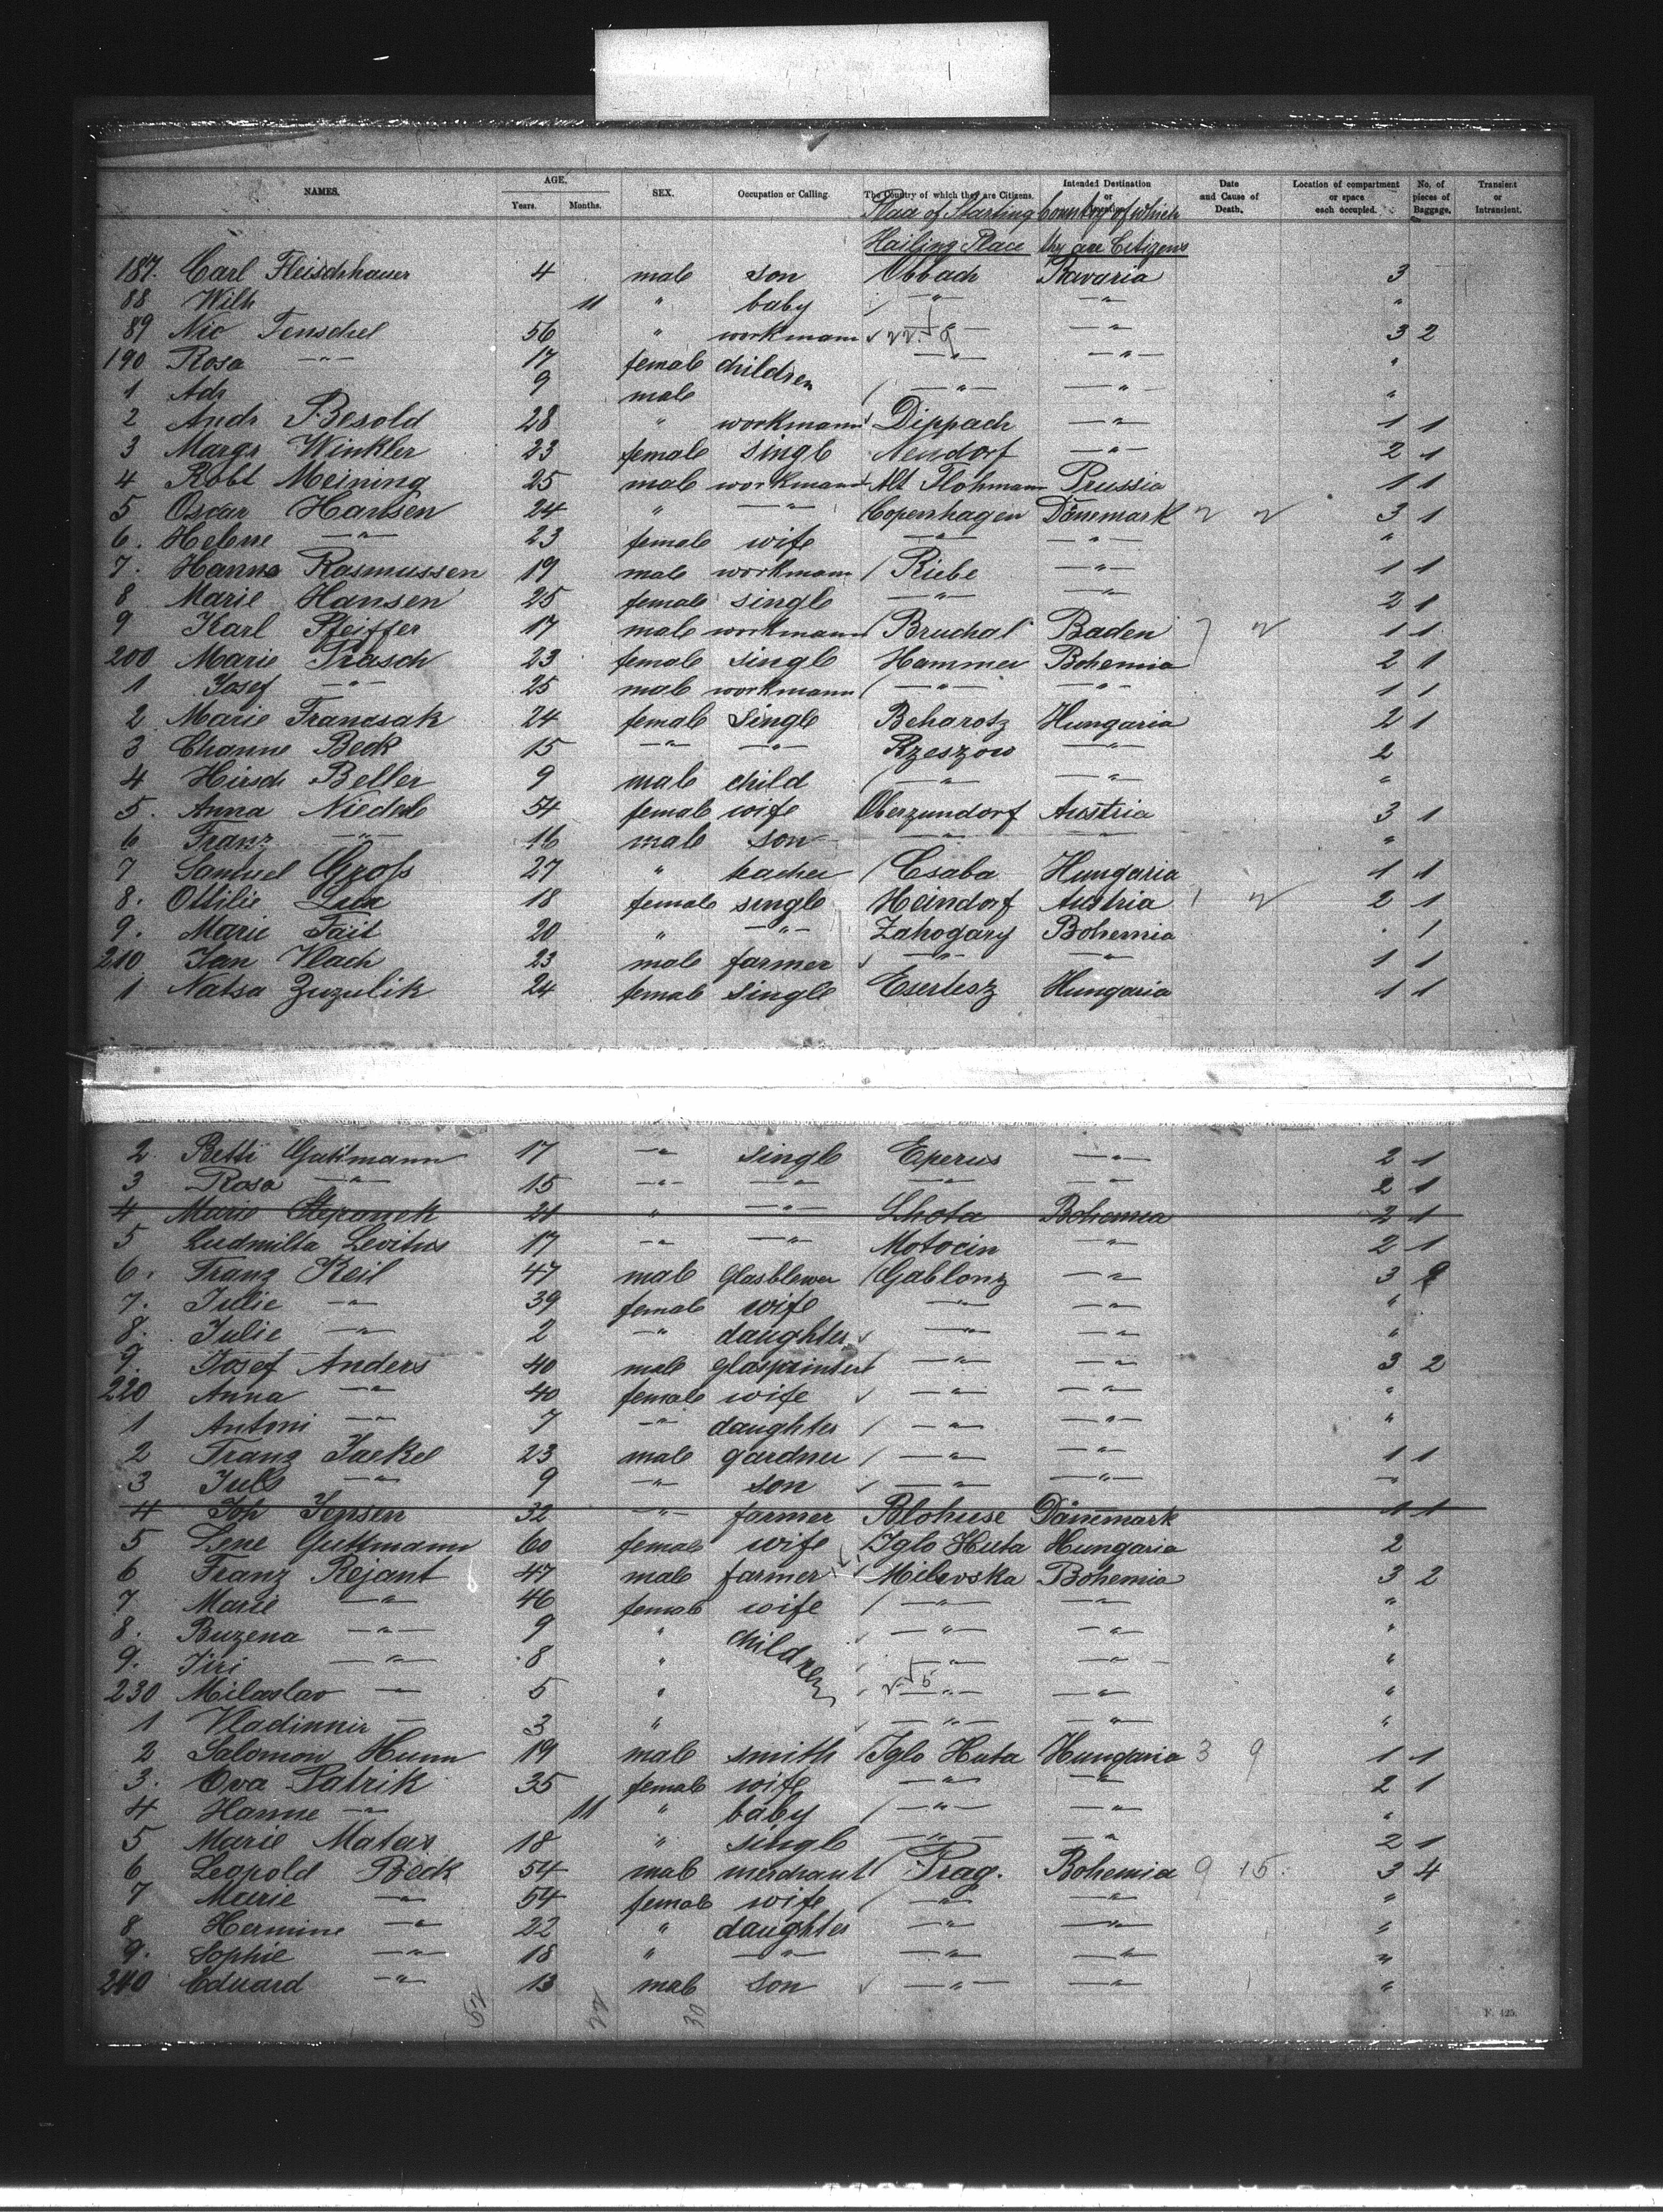 NAMES. AGE. Years. Months. SEX. Occupation or Calling. The Country of which they are Citizens. Intended Destination or Date and Cause of Death. Location of compartment or space each occupied. No. of pieces of Baggage. Transient or Intransient.
Place of Starting Country of which
Hailing Place they are Citizens
187. Carl Fleischhauer 4 male son Obbach Bavaria 3
88 Wilh 11 " baby -"- -"- "
89 Nic Fenschel 56 " workmann -"- -"- 3 2
190 Rosa -"- 17 female children -"- -"- "
1 Adr 9 male -"- -"- "
2 Andr Besold 28 " workmann Dippach -"- 1 1
3 Margr Winkler 23 female single Neudorf -"- 2 1
4 Robt Meining 25 male workmann Alt Flohmann Prussia 1 1
5 Oscar Hansen 24 " -"- Copenhagen Dänemark 3 1
6. Helene -"- 23 female wife -"- -"- "
7. Hanns Rasmussen 19 male workmann Riebe -"- 1 1
8 Marie Hansen 25 female single -"- -"- 2 1
9 Karl Pfeiffer 17 male workmann Bruchal Baden 1 1
200 Marie Prasch 23 female single Hammer Bohemia 2 1
1 Josef -"- 25 male workmann -"- -"- 1 1
2 Marie Francsak 24 female single Beharotz Hungaria 2 1
3 Channe Beck 15 -"- -"- Rzeszow -"- 2
4 Hirsch Beller 9 male child -"- -"- "
5. Anna Niederle 54 female wife Oberzundorf Austria 3 1
6 Franz -"- 16 male son -"- -"- "
7 Samuel Gross 27 " teacher Csaba Hungaria 1 1
8. Ottilie Lux 18 female single Heindorf Austria 2 1
9. Marie Fait 20 " -"- Zahogary Bohemia 1
210 Jan Vlach 23 male farmer -"- -"- 1 1
1 Natsa Zuzulik 24 female single Esertesz Hungaria 1 1
2. Betti Guttmann 17 -"- single Eperus -"- 2 1
3 Rosa -"- 15 -"- -"- -"- -"- 2 1
4 Marie Stepanek 21 " -"- Lhota Bohemia 2 1
5 Ludmilla Levitus 17 -"- -"- Motocin -"- 2 1
6. Franz Keil 47 male Glasblower Gablonz -"- 3
7. Julie -"- 39 female wife -"- -"- "
8. Julie -"- 2 -"- daughter -"- -"- "
9. Josef Anders 40 male glasprinter -"- -"- 3 2
220 Anna -"- 40 female wife -"- -"- "
1 Antoni -"- 7 -"- daughter -"- -"- "
2 Franz Jaekel 23 male gardner -"- -"- 1 1
3 Juls -"- 9 -"- son -"- -"- -"-
4 Joh Jensen 32 -"- farmer Blohuse Dänemark 1 1
5 Lene Guttmann 60 female wife Iglo Huta Hungaria 2
6 Franz Rejant 47 male farmer Milevska Bohemia 3 2
7 Marie -"- 46 female wife -"- -"- "
8. Buzena -"- 9 " children -"- -"- "
9. Jiri -"- 8 " -"- -"- "
230 Milaslav -"- 5 " -"- -"- "
1 Vladimir - 3 " -"- -"- "
2 Salomon Hunn 19 male smith Iglo Huta Hungaria 3 9 1 1
3. Eva Patrik 35 female wife -"- -"- 2 1
4 Hanne -"- 11 " baby -"- -"- "
5 Marie Matas 18 " single -"- -"- 2 1
6 Leopold Beck 54 male merchant Prag. Bohemia 9 15. 3 4
7 Marie -"- 54 female wife -"- -"- "
8 Hermine -"- 22 " daughter -"- -"- "
9. Sophie -"- 18 " -"- -"- -"- "
240 Eduard -"- 13 male son -"- -"- "
52 22 30
F. 125.